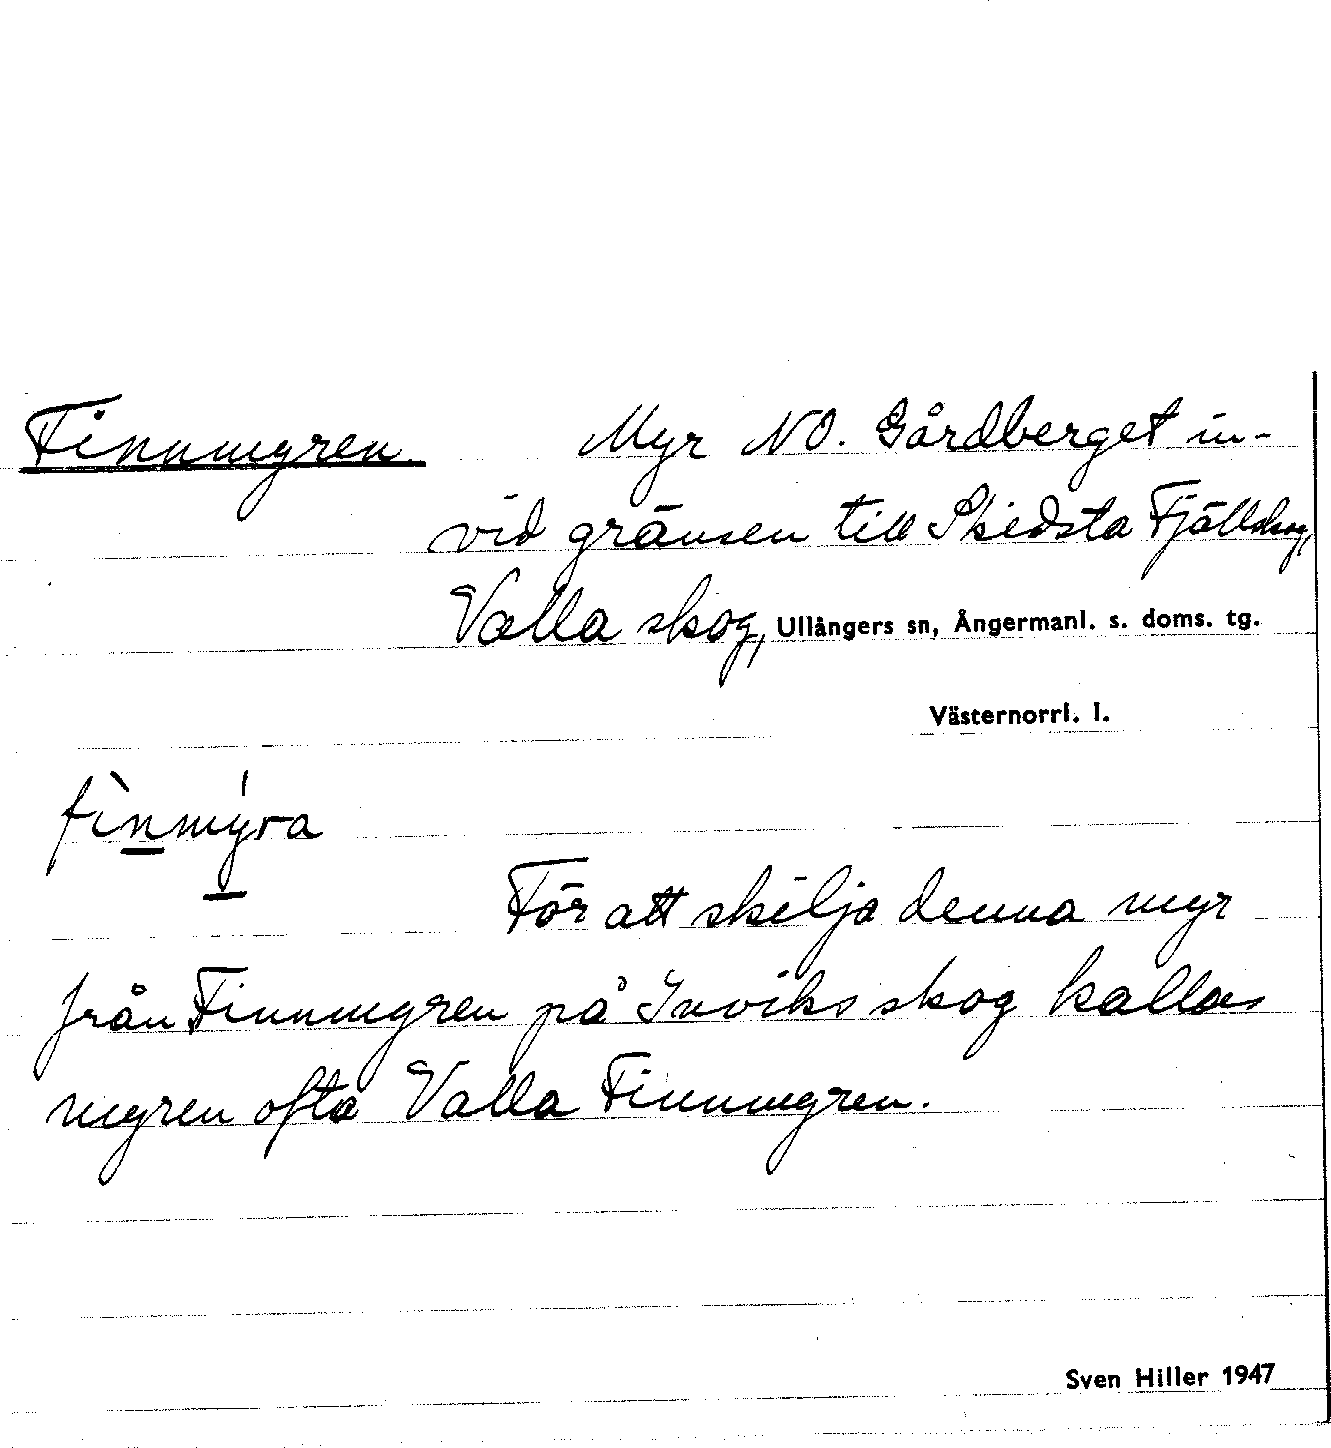 Finnmyren. Myr NO. Gårdberget in-
vid gränsen till Skedsta Fjällskog,
Valla skog, Ullångers sn, Ångermanl. s. doms. tg.
Västernorrl. l.
fìnmýra
För att skilja denna myr
från Finnmyren på Inviks skog kallas
myren ofta Valla Finnmyren.
Sven Hiller 1947